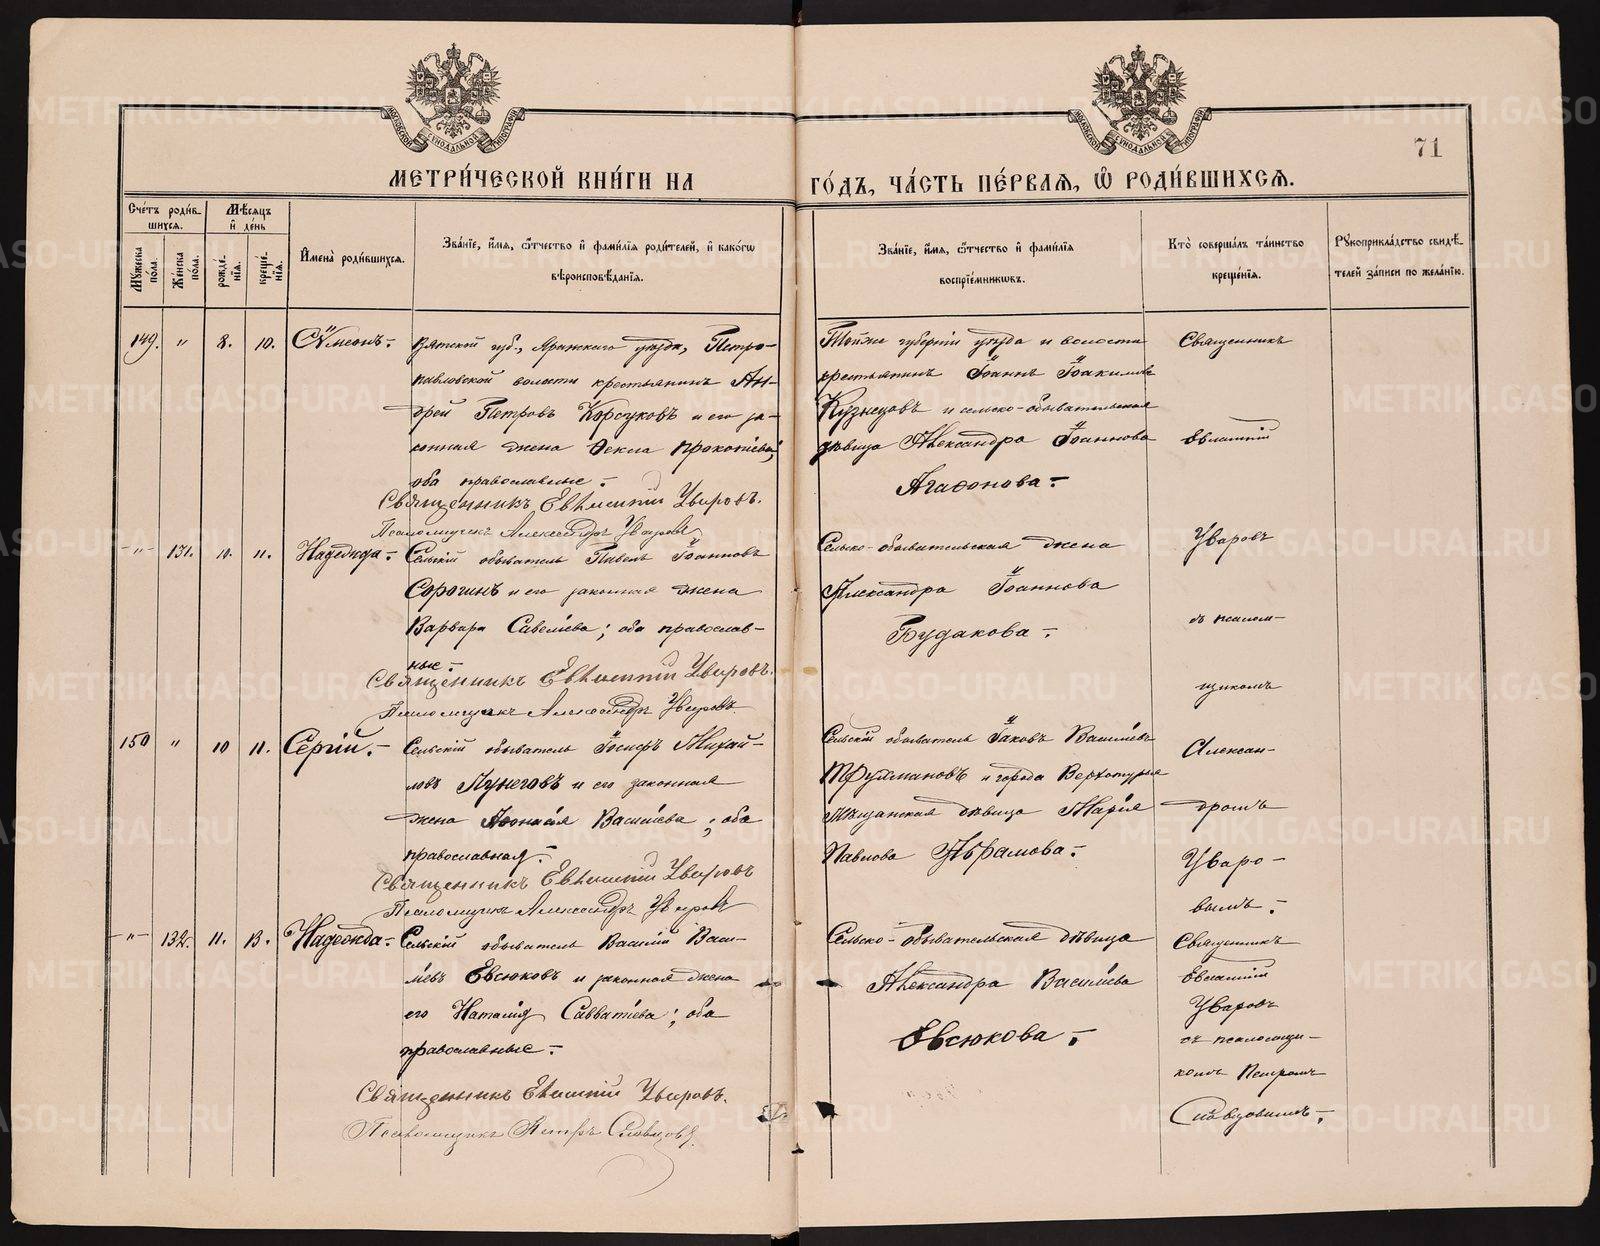 МОСКОВСКОЙ СѴНОДАЛЬНОЙ ТИПОГРАФІИ
МОСКОВСКОЙ СѴНОДАЛЬНОЙ ТИПОГРАФІИ
71
МЕТРИ́ЧЕСКОЙ КНИ́ГИ НА
ГО́ДЪ, ЧА́СТЬ ПЕ́РВАЯ, Ѡ҆ РОДИ́ВШИХСЯ.
Сче́тъ роди́в-
шихся.
Му́жеска по́ла.
Же́нска по́ла.
Мѣ́сяцъ
и҆ де́нь
рожде́-
нїя.
креще́-
нїя.
И҆мена̀ роди́вшихся.
Зва́нїе, и҆́мя, ѻ҆́тчество и҆ фами́лїя роди́телей, и҆ како́гѡ
вѣроисповѣ́данїя.
Зва́нїе, и҆́мя, ѻ҆́тчество и҆ фами́лїя
воспрїе́мникѡвъ.
Кто̀ соверша́лъ та́инство
креще́нїя.
Рꙋкоприкла́дство свидѣ́-
телей за́писи по жела́нїю.
149. " 8. 10. Сѵмеонъ.
Вятской губ., Яранскаго уѣзда, Петро-
павловской волости крестьянинъ Ан-
дрей Петровъ Корсуковъ и его за-
конная жена Ѳекла Прокопіева;
оба православные.
Священникъ Евѳимій Уваровъ.
Псаломщикъ Александръ Уваровъ
Тойже губерніи уѣзда и волости
крестьянинъ Іоаннъ Іоакимовъ
Кузнецовъ и сельско-обывательская
дѣвица Александра Іоаннова
Агафонова.
Священникъ
Евѳимій
-"- 131. 10. 11. Надежда.
Сельскій обыватель Павелъ Іоанновъ
Сорогинъ и его законная жена
Варвара Савеліева; оба православ-
ные.
Священникъ Евѳимій Уваровъ.
Псаломщикъ Александръ Уваровъ.
Сельско-обывательская жена
Александра Іоаннова
Будакова.
Уваровъ
съ псалом-
щикомъ
150 " 10 11. Сергій.
Сельскій обыватель Іосифъ Михай-
ловъ Лунеговъ и его законная
жена Аѳонасія Василіева; оба
православная.
Священникъ Евѳимій Уваровъ
Псаломщикъ Александръ Уваровъ
Сельскій обыватель Іаковъ Василіевъ
Труxмановъ и города Верхотурья
мѣщанская дѣвица Марія
Павлова Абрамова.
Алексан-
дромъ
Уваро-
вымъ.
-"- 132. 11. 13. Надежда.
Сельскій обыватель Василій Васи-
ліевъ Евсюковъ и законная жена
его Наталія Савватіева; оба
православные.
Священникъ Евѳимій Уваровъ.
Псаломщикъ Петръ Словцовъ.
Сельско-обывательская дѣвица
Александра Василіева
Евсюкова.
Священникъ
Евѳимій
Уваровъ
съ псаломщи-
комъ Петромъ
Словцовымъ.
METRIKI.GASO-URAL.RU